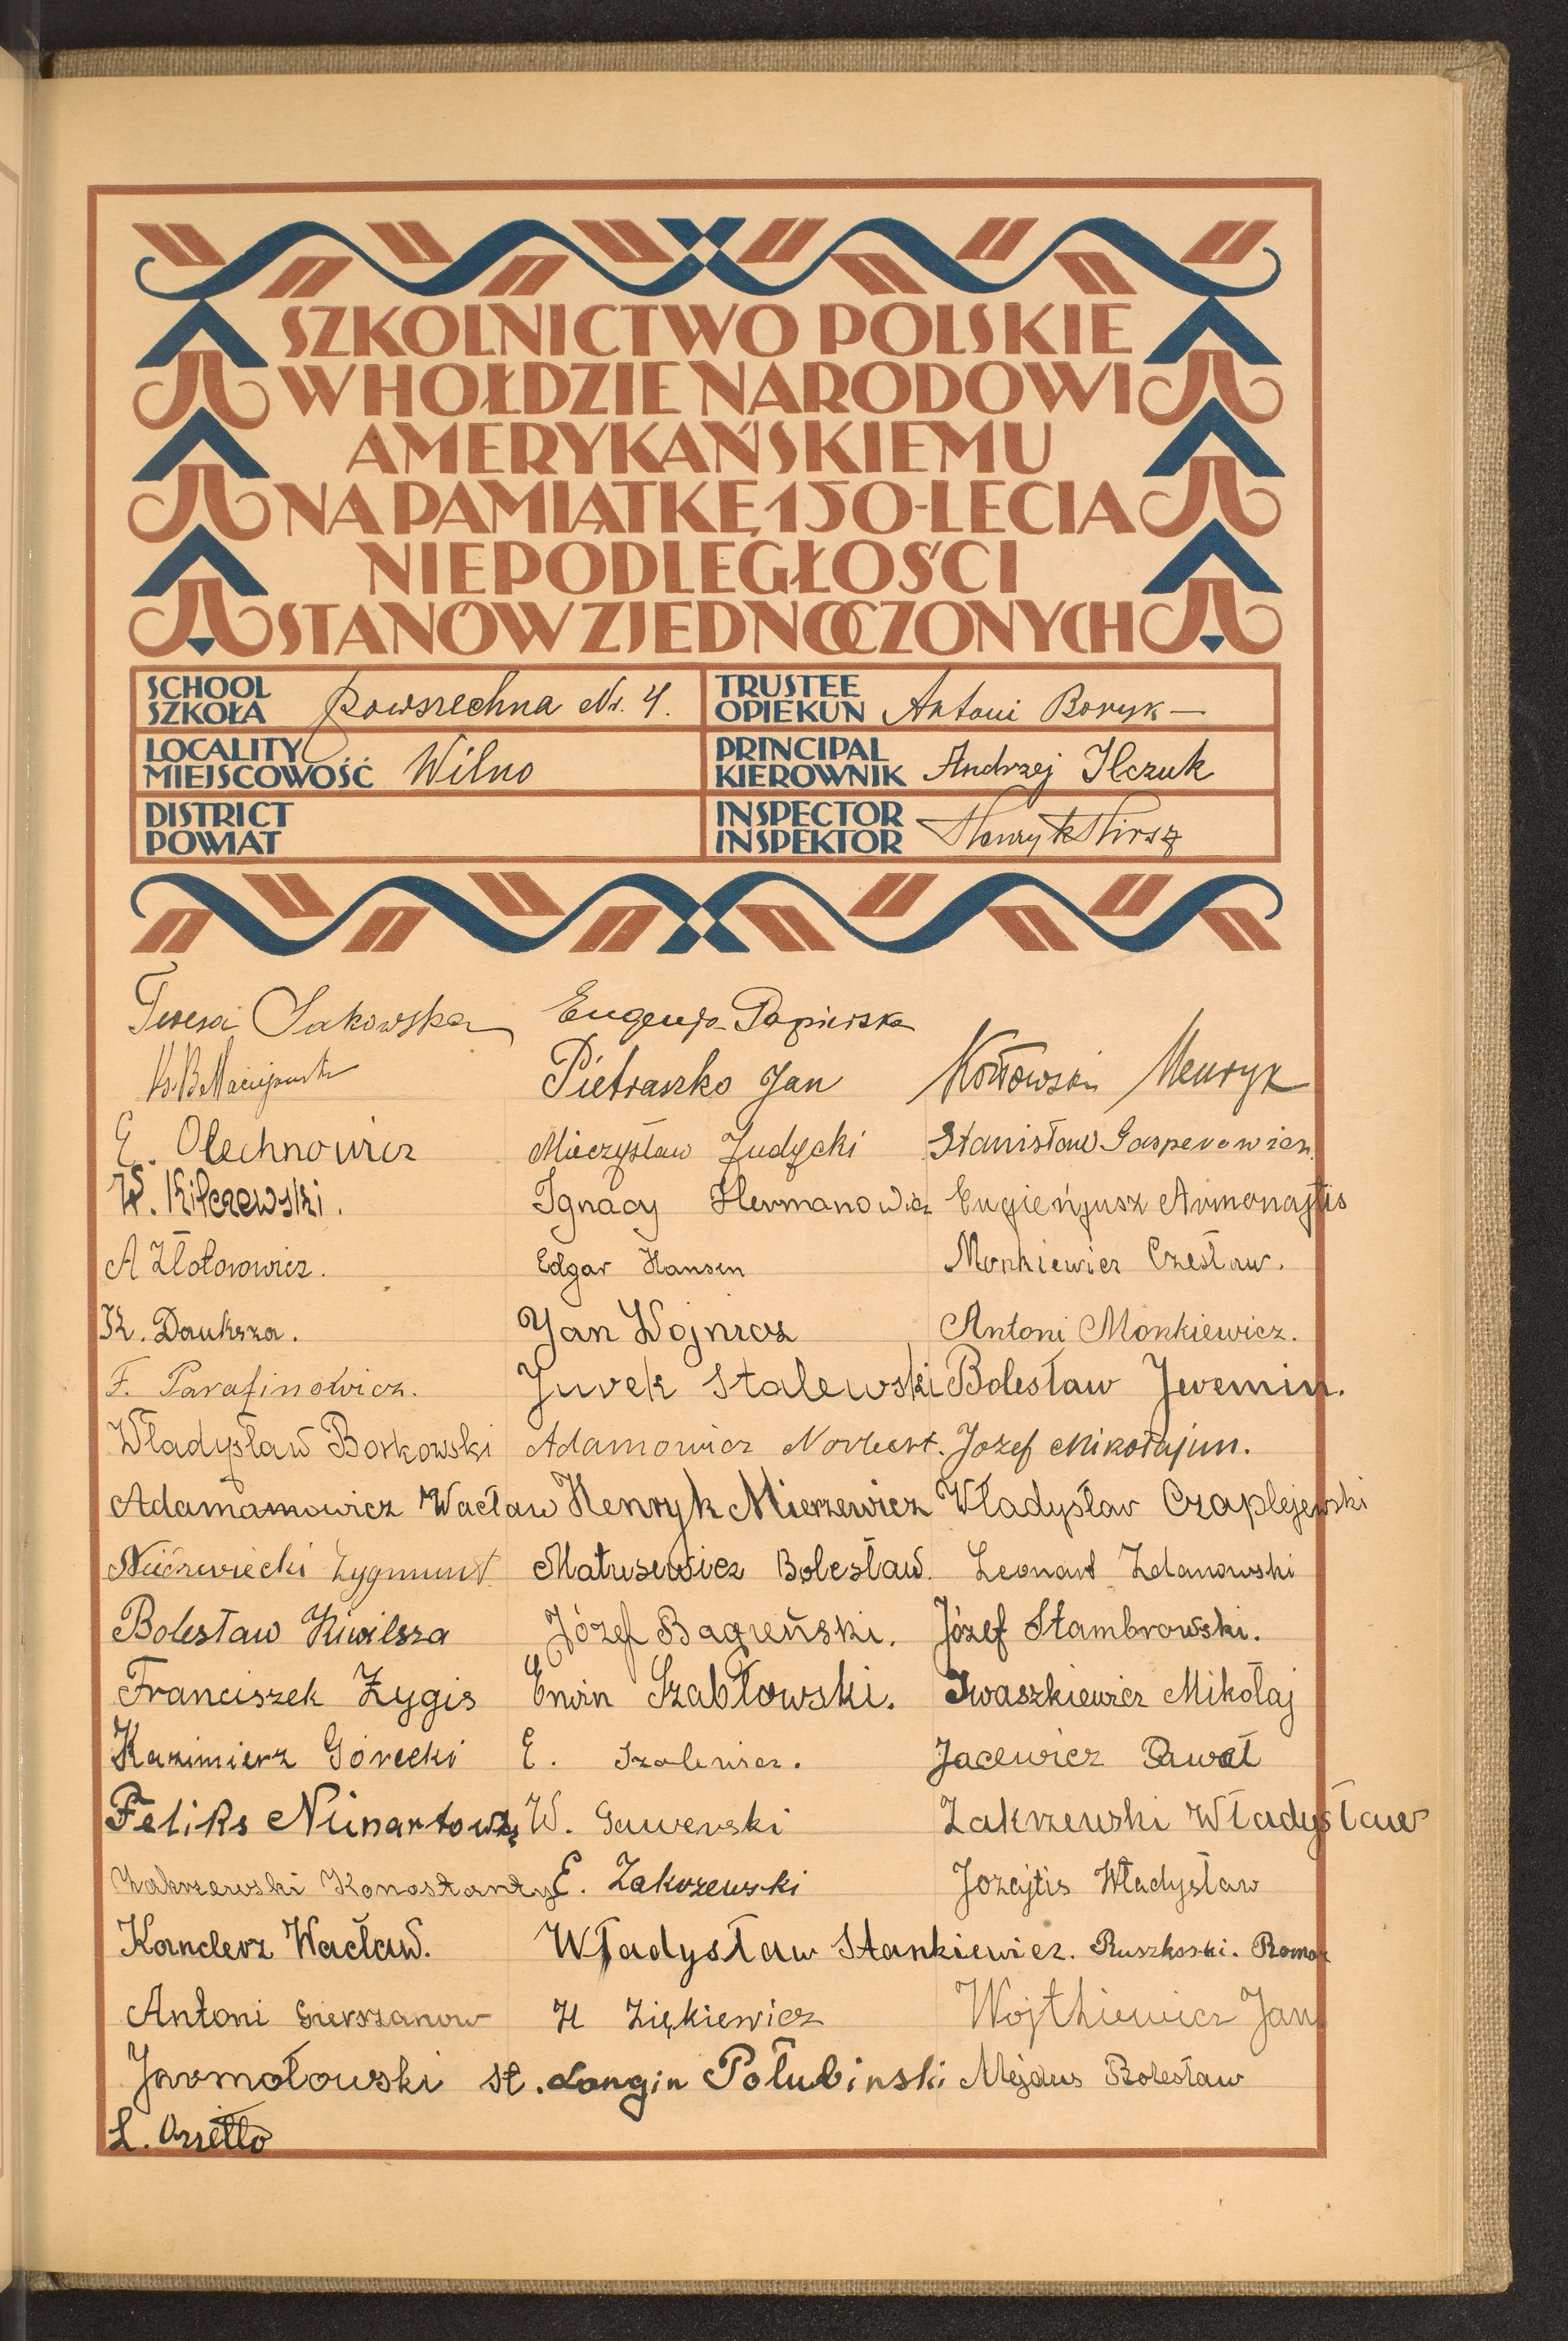 SZKOLNICTWO POLSKIE
W HOŁDZIE NARODOWI
AMERYKAŃSKIEMU
NA PAMIĄTKĘ 150-LECIA
NIEPODLEGŁOŚCI
STANÓW ZJEDNOCZONYCH
SCHOOL SZKOŁA Powszechna Nr. 4.
TRUSTEE OPIEKUN Antoni Boryk
LOCALITY MIEJSCOWOŚĆ Wilno
PRINCIPAL KIEROWNIK Andrzej Ilczuk
DISTRICT POWIAT
INSPECTOR INSPEKTOR Henryk Hirsz
Teresa Sakowska Eugenja Papierska
Pietraszko Jan Kozłowski Henryk
E. Olechnowicz Mieczysław Judycki Stanisław Gasperowicz
W. Kilczewski. Ignacy Hermanowicz Eugieńjusz Armonajtis
A Złotorowicz. Edgar Hansen Monkiewicz Czesław.
K. Dauksza. Jan Wojnicz Antoni Monkiewicz.
F. Parafinowicz. Jurek Stalewski Bolesław Jeremin.
Władysław Borkowski Adamowicz Norbert. Jozef Mikołajun.
Adamamowicz Wacław Henryk Mierzewicz Władysław Czaplejewski
Zygmunt Matusewicz Bolesław. Leonard Zdanowski
Bolesław Kiwilsza Józef Bagieński. Józef Stambrowski.
Franciszek Zygis Erwin Szabłowski. Iwaszkiewicz Mikołaj
Kazimierz Górecki E. Jacewicz Paweł
Feliks W. Gawerski Zakrzewski Władysław
Zakrzewski Konostanty E. Zakrzewski Jozajtis Władysław
Kanderz Wacław. Władysław Stankiewicz. Ruszkoski. Roman
Antoni Gierszanow H Ziękiewicz Wojtkiewicz Jan
Jarmołowski St. Longin Połubinski Mejdus Bolesław
L.